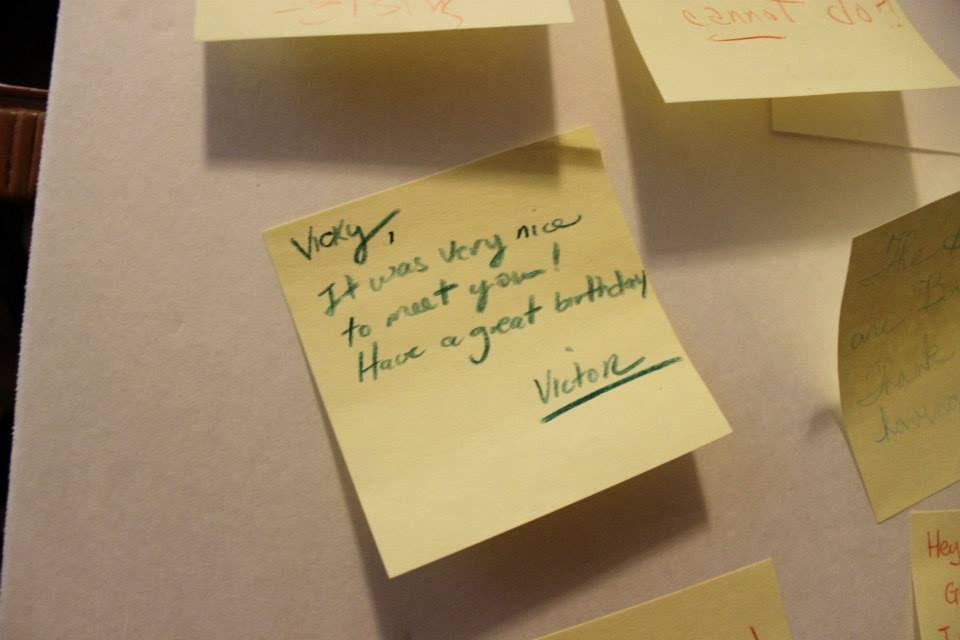 cannot do?
Vicky,
It was very nice
to meet you!
Have a great birthday
Victor
The
are
Thank
Hey
G
I